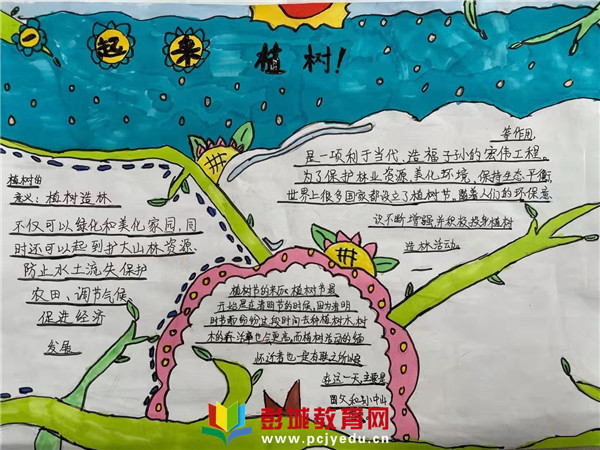 一起来植树！
植树的
意义：植树造林
不仅可以绿化和美化家园,同
时还可以起到护大山林资源、
防止水土流失保护
农田、调节气候、
促进经济
发展
等作用,
是一项利于当代、造福子孙的宏伟工程。
为了保护林业资源,美化环境、保持生态平衡,
世界上很多国家都设立了植树节,
人们的环保意
识不断增强,并积极投身植树
造林活动。
植树节的来历: 植树节最
开始是在清明节的时候,因为清明
时节雨纷纷,这段时间去种植树木,树
木的成活率也会更高,而植树活动的缅
怀逝者也一定有联
在这一天,主要是
国父
中山
彭城教育网
www.pcjyedu.cn